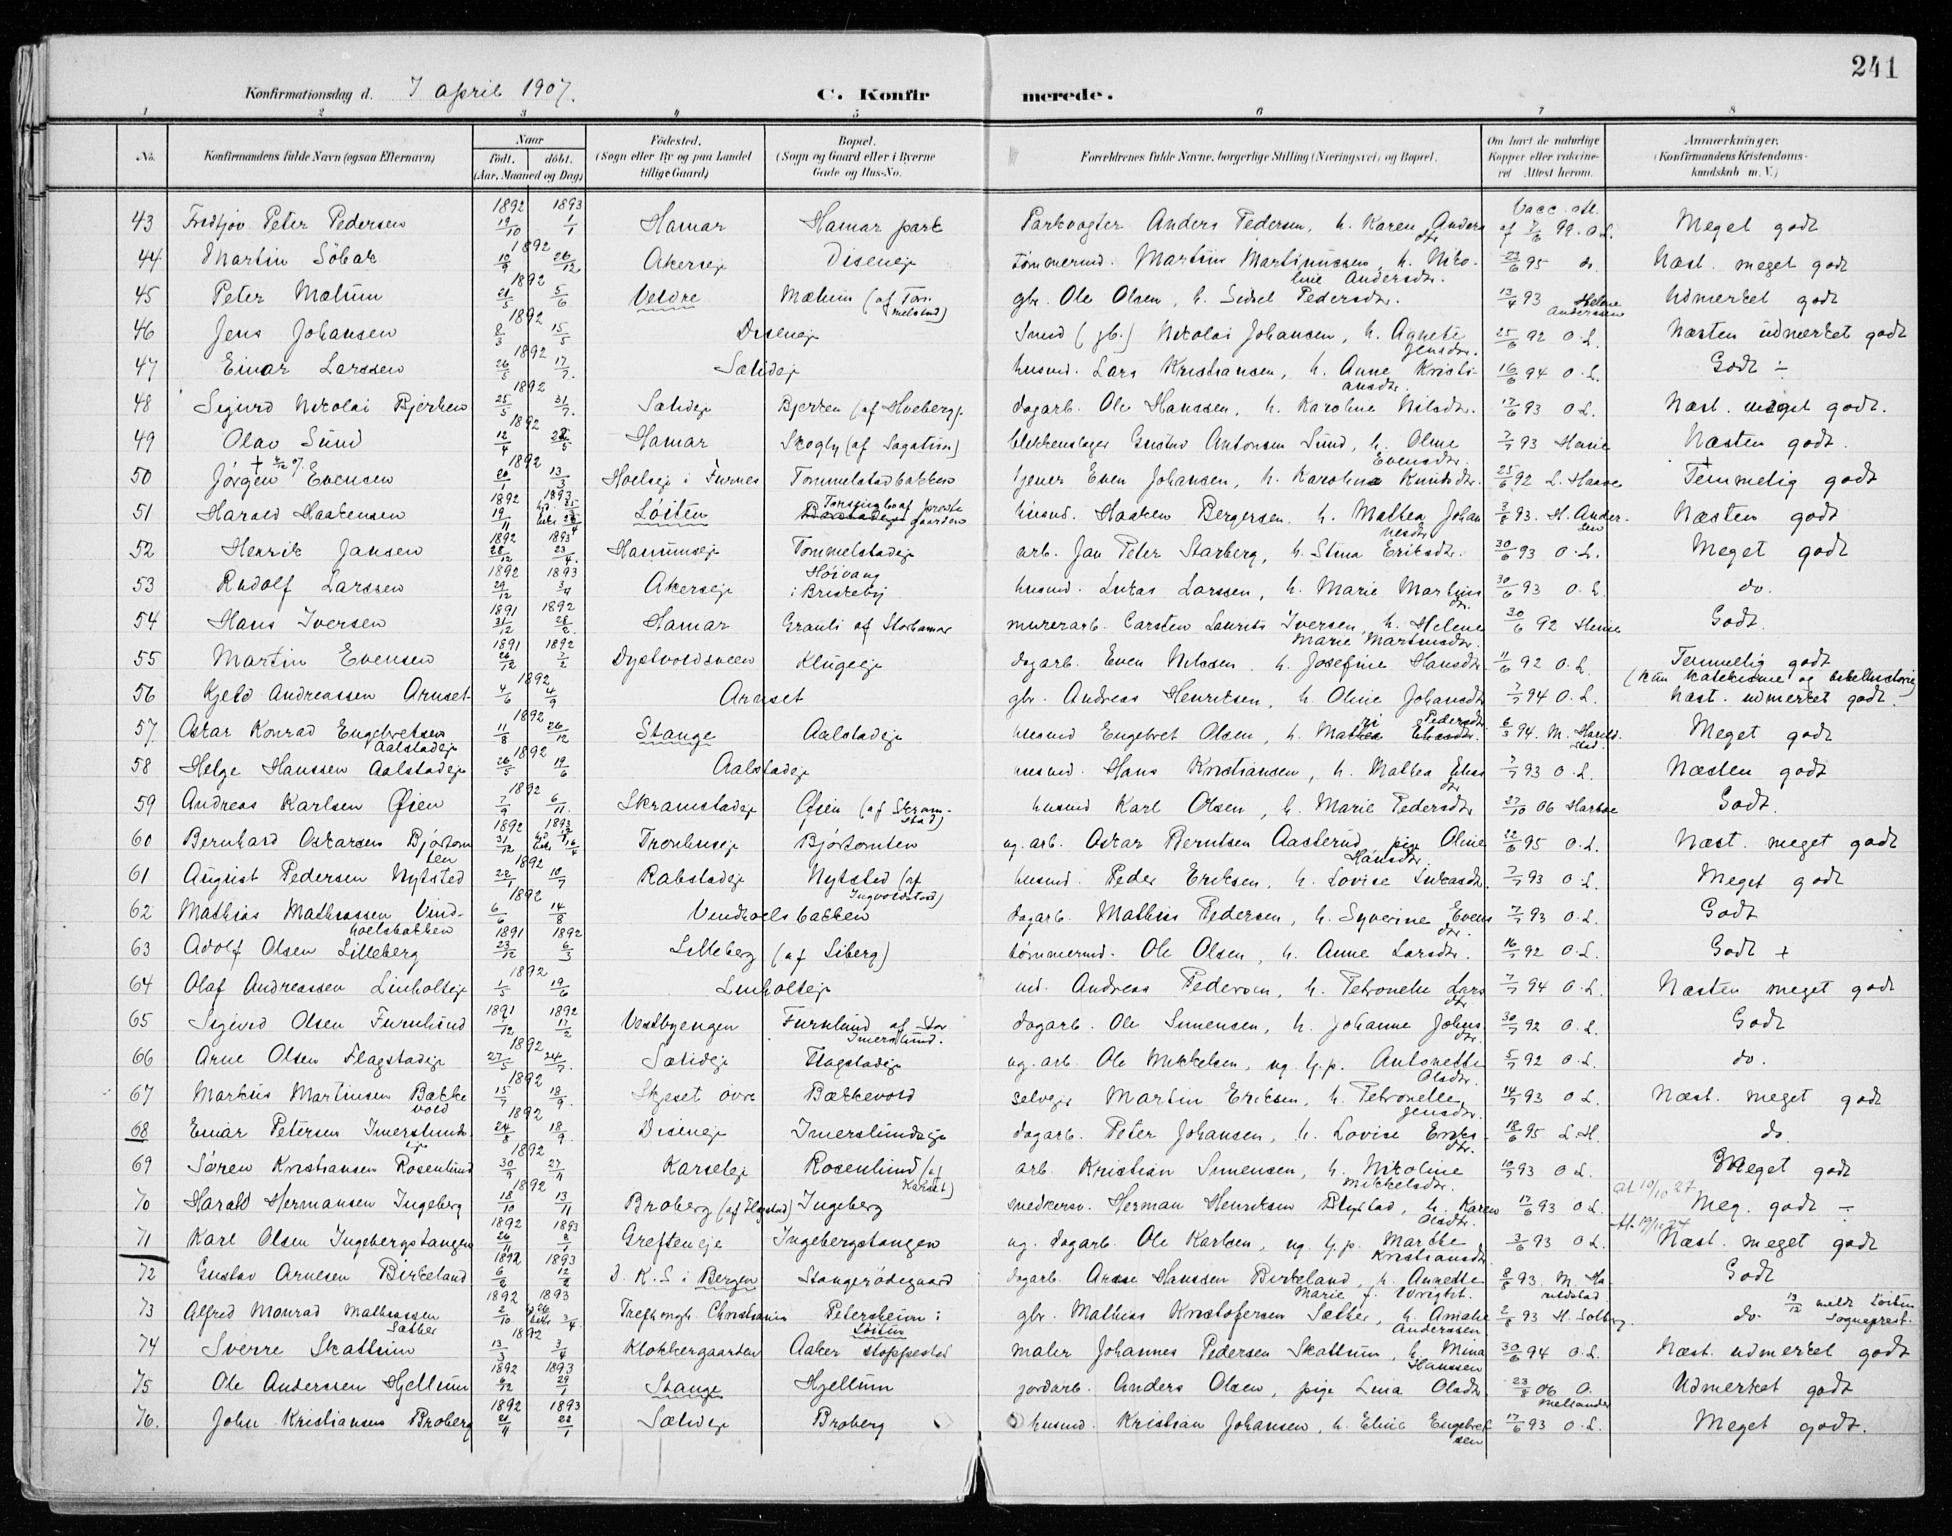 241
Konfirmationsdag d. 7 April 1907. C. Konfirmerede.
1 2 3 4 5 6 7 8
No. Konfirmandens fulde Navn (ogsaa Efternavn) Naar født. døbt. (Aar, Maaned og Dag) Fødested. (Sogn eller By og paa Landet tillige Gaard) Bopæl. (Sogn og Gaard eller i Byerne Gade og Hus-No. Forældrenes fulde Navne, borgerlige Stilling (Næringsvei) og Bopæl. Om havt de naturlige Kopper eller vakcineret Attest herom. Anmærkninger. (Konfirmandens Kristendomskundskab m. V.)
43 Fredtjov Peter Pedersen 1892 19/10 1893 1/1 Hamar Hamar park Parkvogter Anders Pedersen, h. Karen Andersdtr Vacc. att. af 7/6 99. O.L. Meget godt
44 Martin Søbak 1892 10/9 26/12 Akerseje Diseneje tømmermd. Martin Martinussen, h. Nikoline Andersdtr. 23/6 95 do. Næst. meget godt
45 Peter Mælum 1892 21/5 5/6 Veldre Mælum (af Tommelstad) gbr. Ole Olsen, h. Sidsel Pedersdtr. 13/4 93 Helene Anderssen Udmerket godt
46 Jens Johansen 1892 8/3 15/5 Diseneje Smed (gb.) Nikolai Johansen, h. Agnete Jensdtr. 25/6 92 O.L. Næsten udmerket godt
47 Einar Larssen 1892 26/5 17/7. Sælideje husmd. Lars Kristiansen, h. Anne Kristiansdtr. 16/6 94 O.L. Godt ÷
48 Sigurd Nikolai Bjerken 1892 25/5 31/7. Sælideje Bjerken (af Hveberg). dagarb. Ole Hanssen, h. Karoline Nilsdtr. 17/6 93 O.L. Næst. meget godt.
49 Olav Sund 1892 12/4 28/5 Hamar Skogly (af Sagatun) blikkenslager Gustav Antonsen Sund, h. Oline Evensdtr. 7/7 93 Henie Næsten godt.
50 Jørgen Evensen 1892 20/1 13/3 Hoelseje i Furnes Tommelstadbakken tjener Even Johansen, h. Karoline Knutsdtr. 25/6 92 L. Haave Temmelig godt
51 Harald Haakensen 1892 19/11 1893 Løiten husmd. Haaken Bergersen, h. Mathea Johannesdtr 3/8 93. H. Andersen Næsten godt
52 Henrik Jansen 1892 28/12 1893 23/4. Hamuns­eje Tommelstadeje arb. Jan Peter Starberg, h. Stina Eriksdtr. 30/6 93 O.L. Meget godt
53 Rudolf Larssen 1892 29/12 1893 3/4 Akerseje Høivang i Briskeby husmd. Lukas Larssen, h. Marie Martinsdtr. 30/6 93 O.L. do.
54 Hans Iversen 1891 31/12 1892 28/2. Hamar Granli af Storhamar murerarb. Carsten Laurits Iversen, h. Helene Marie Martinsdtr. 30/6 92 Henie Godt.
55 Martin Evensen 1891 26/12 1892 7/2 Dystvoldsveen Klugeeje dagarb. Even Nilssen, h. Josefine Hansdtr. 11/6 92 O.L. Temmelig godt (kun katekisme og bibelhistorie)
56 Kjeld Andreassen Arnset 1892 4/6 4/9 Arnset gbr. Andreas Henriksen, h. Oline Johansdtr 7/7 94 O.L. Næst. udmerket godt.
57 Oskar Konrad Engebretsen Aalstadeje 1892 11/8 26/12 Stange Aalstadeje husmd Engebret Olsen, h. Pedersdtr 6/3 94. M. Haralstad. Meget godt
58 Helge Hanssen Aalstadeje 1892 26/5 19/6 Aalstadeje husmd. Hans Kristiansen, h. Mathea Eliasdtr. 7/7 93 O.L. Næsten godt
59 Andreas Karlsen Øien 1892 7/9 6/11. Skramstadeje Øien (af Skramstad) husmd Karl Olsen, h. Marie Pedersdtr 27/10 06 Harboe Godt.
60 Bernhard Oskarsen Bjørtomten 1892 31/12 1893 Tronhuseje Bjørtomten ug. arb. Oskar Berntsen Aasterud, pige Oline Hansdtr. 22/6 95 O.L. Næst. meget godt
61 August Pedersen Nytsted 1892 28/1 10/7 Rabstadeje Nytsted (af Ingvoldstad) husmd. Peder Eriksen, h. Lovise Lukasdtr. 7/7 93 O.L. Meget godt
62 Mathias Mathiassen Vindhoelsbakken 1892 6/6 14/8 Vindhoelsbakken dagarb. Mathis Pedersen, h. Syverine Evensdtr. 7/7 93 O.L. Godt
63 Adolf Olsen Lilleberg 1891 23/12 1892 6/3 Lilleberg (af Liberg) tømmermd. Ole Olsen, h. Anne Larsdtr. 16/7 92 O.L. Godt +
64 Olaf Andreassen Linholteje 1892 1/5 19/6 Linholteje md. Andreas Pedersen, h. Petronelle Larsdtr 7/7 94 O.L. Næsten meget godt
65 Sigurd Olsen Furulund 1891 1892 17/2 Vestbyengen Furulund af Stor Imerslund. dagarb. Ole Simensen, h. Johanne Johnsdtr. 30/7 92 O.L. Godt
66 Arne Olsen Flagstadeje 1892 27/5 24/7. Sælideje Flagstadeje ug. arb. Ole Mikkelsen, ug. G.p. Antonette Olsdtr. 5/7 92 O.L. do.
67 Markus Martinsen Bækkevold 1892 15/7 18/9. Skjeset øvre Bækkevold selveje Martin Eriksen, h. Petronelle Jensdtr. 14/7 93 O.L. Næst. meget godt
68 Einar Petersen Imerslundeje 1892 24/8 18/9. Diseneje Imerslundseje dagarb. Peter Johansen, h. Lovise Eriksdtr. 18/6 95 L.H. do.
69 Søren Kristiansen Rosenlund 1892 30/9 27/11 Karseteje Rosenlund (af Karset) arb. Kristian Simensen, h. Nikoline Mikkelsdtr. 10/7 93 O.L. Meget godt
70 Harald Hermansen Ingeberg 1892 18/10 13/11 Broberg (af Flagstad) Ingeberg snedkersv. Herman Henriksen Blystad, h. Karen Olsdtr. 17/6 93 O.L. att 19/10 27 Meg. godt ÷
71 Karl Olsen Ingebergstangen 1892 26/11 1893 2/1 Grefteneje Ingebergstangen ug. dagarb. Ole Karlsen, ug. G.p. Marthe Kristiansdtr 3/6 93 O.L. Næst. meget godt
72 Gustav Arnesen Birkeland 1892 6/2 1893 12/2 D.K.S i Bergen Stangerødegaard dagarb. Arne Hanssen Birkeland, h. Annette Marie f. Wright. 8/6 93. M. Haraldstad Godt
73 Alfred Monrad Mathiassen Sæther 1892 2/10 1893 Trefoldigh. Christiania Petersheim i Løiten gbr. Mathias Kristofersen Sæther, h. Amalie Anderssen 2/8 93 H. Solberg do. 13/12 meldt Løiten sogneprest.
74 Sverre Skattum 1892 13/3 3/4 Klokkergaarden Aaker stoppested maler Johannes Pedersen Skattum, h. Mina Hanssen 30/6 94 O.L. Næst. udmerket godt
75 Ole Anderssen Hjellum 1892 6/12 1893 29/1 Stange Hjellum jordarb. Anders Olsen, pige Lina Olsdtr. 23/8 06 O. Mellander Udmerket godt
76. John Kristiansen Broberg 1892 21/11 1893 22/1 Sælideje Broberg husmd. Kristian Johansen, h. Eline Engebretsen 17/6 93 O.L. Meget godt.